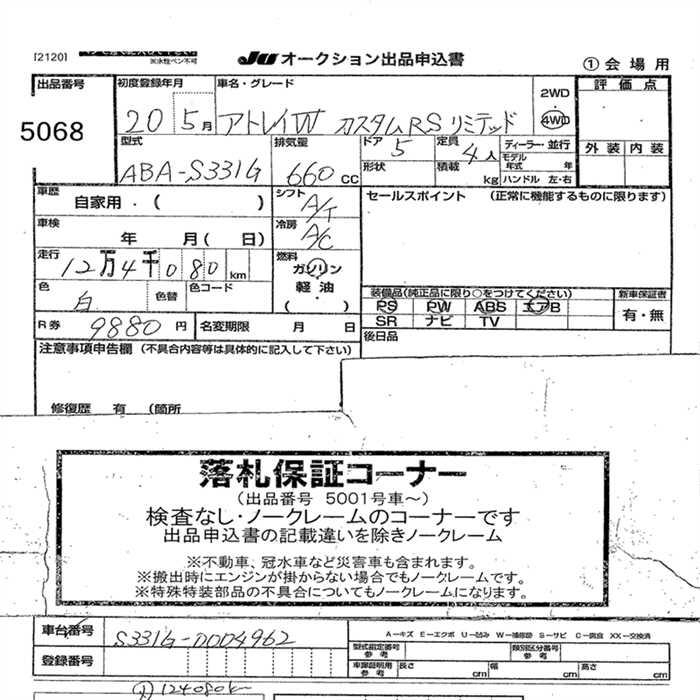 [2120]
※水性ペン不可
JU オークション出品申込書
① 会場用
出品番号
5068
初度登録年月
20 5月
車名・グレード
アトレイW カスタムRS リミテッド
2WD
4WD
評価点
外装 内装
型式
ABA-S331G
排気量
660 CC
ドア 5
形状
定員 4人
積載 kg
ディーラー・並行
モデル年式 年
ハンドル 左・右
車歴
自家用・( )
シフト
A/T
セールスポイント (正常に機能するものに限ります)
車検
年 月( 日)
冷房
A/C
走行
12万4千080km
燃料
ガソリン
軽油
( )
色
白
色替
色コード
装備品(純正品に限り○をつけてください)
PS PW ABS エアB
SR ナビ TV
新車保証書
有・無
R券 9880円
名変期限 月 日
後日品
注意事項申告欄(不具合内容等は具体的に記入して下さい)
修復歴 有 (箇所
落札保証コーナー
(出品番号 5001号車~)
検査なし・ノークレームのコーナーです
出品申込書の記載違いを除きノークレーム
※不動車、冠水車など災害車も含まれます。
※搬出時にエンジンが掛からない場合でもノークレームです。
※特殊特装部品の不具合についてもノークレームになります。
車台番号
S331G-0004962
A-キズ E-エクボ U-凹み W-補修跡 S-サビ C-腐食 XX-交換済
登録番号
型式指定番号 参考
類別区分番号 参考
車庫証明用 参考
長さ cm 幅 cm 高さ cm
124080k